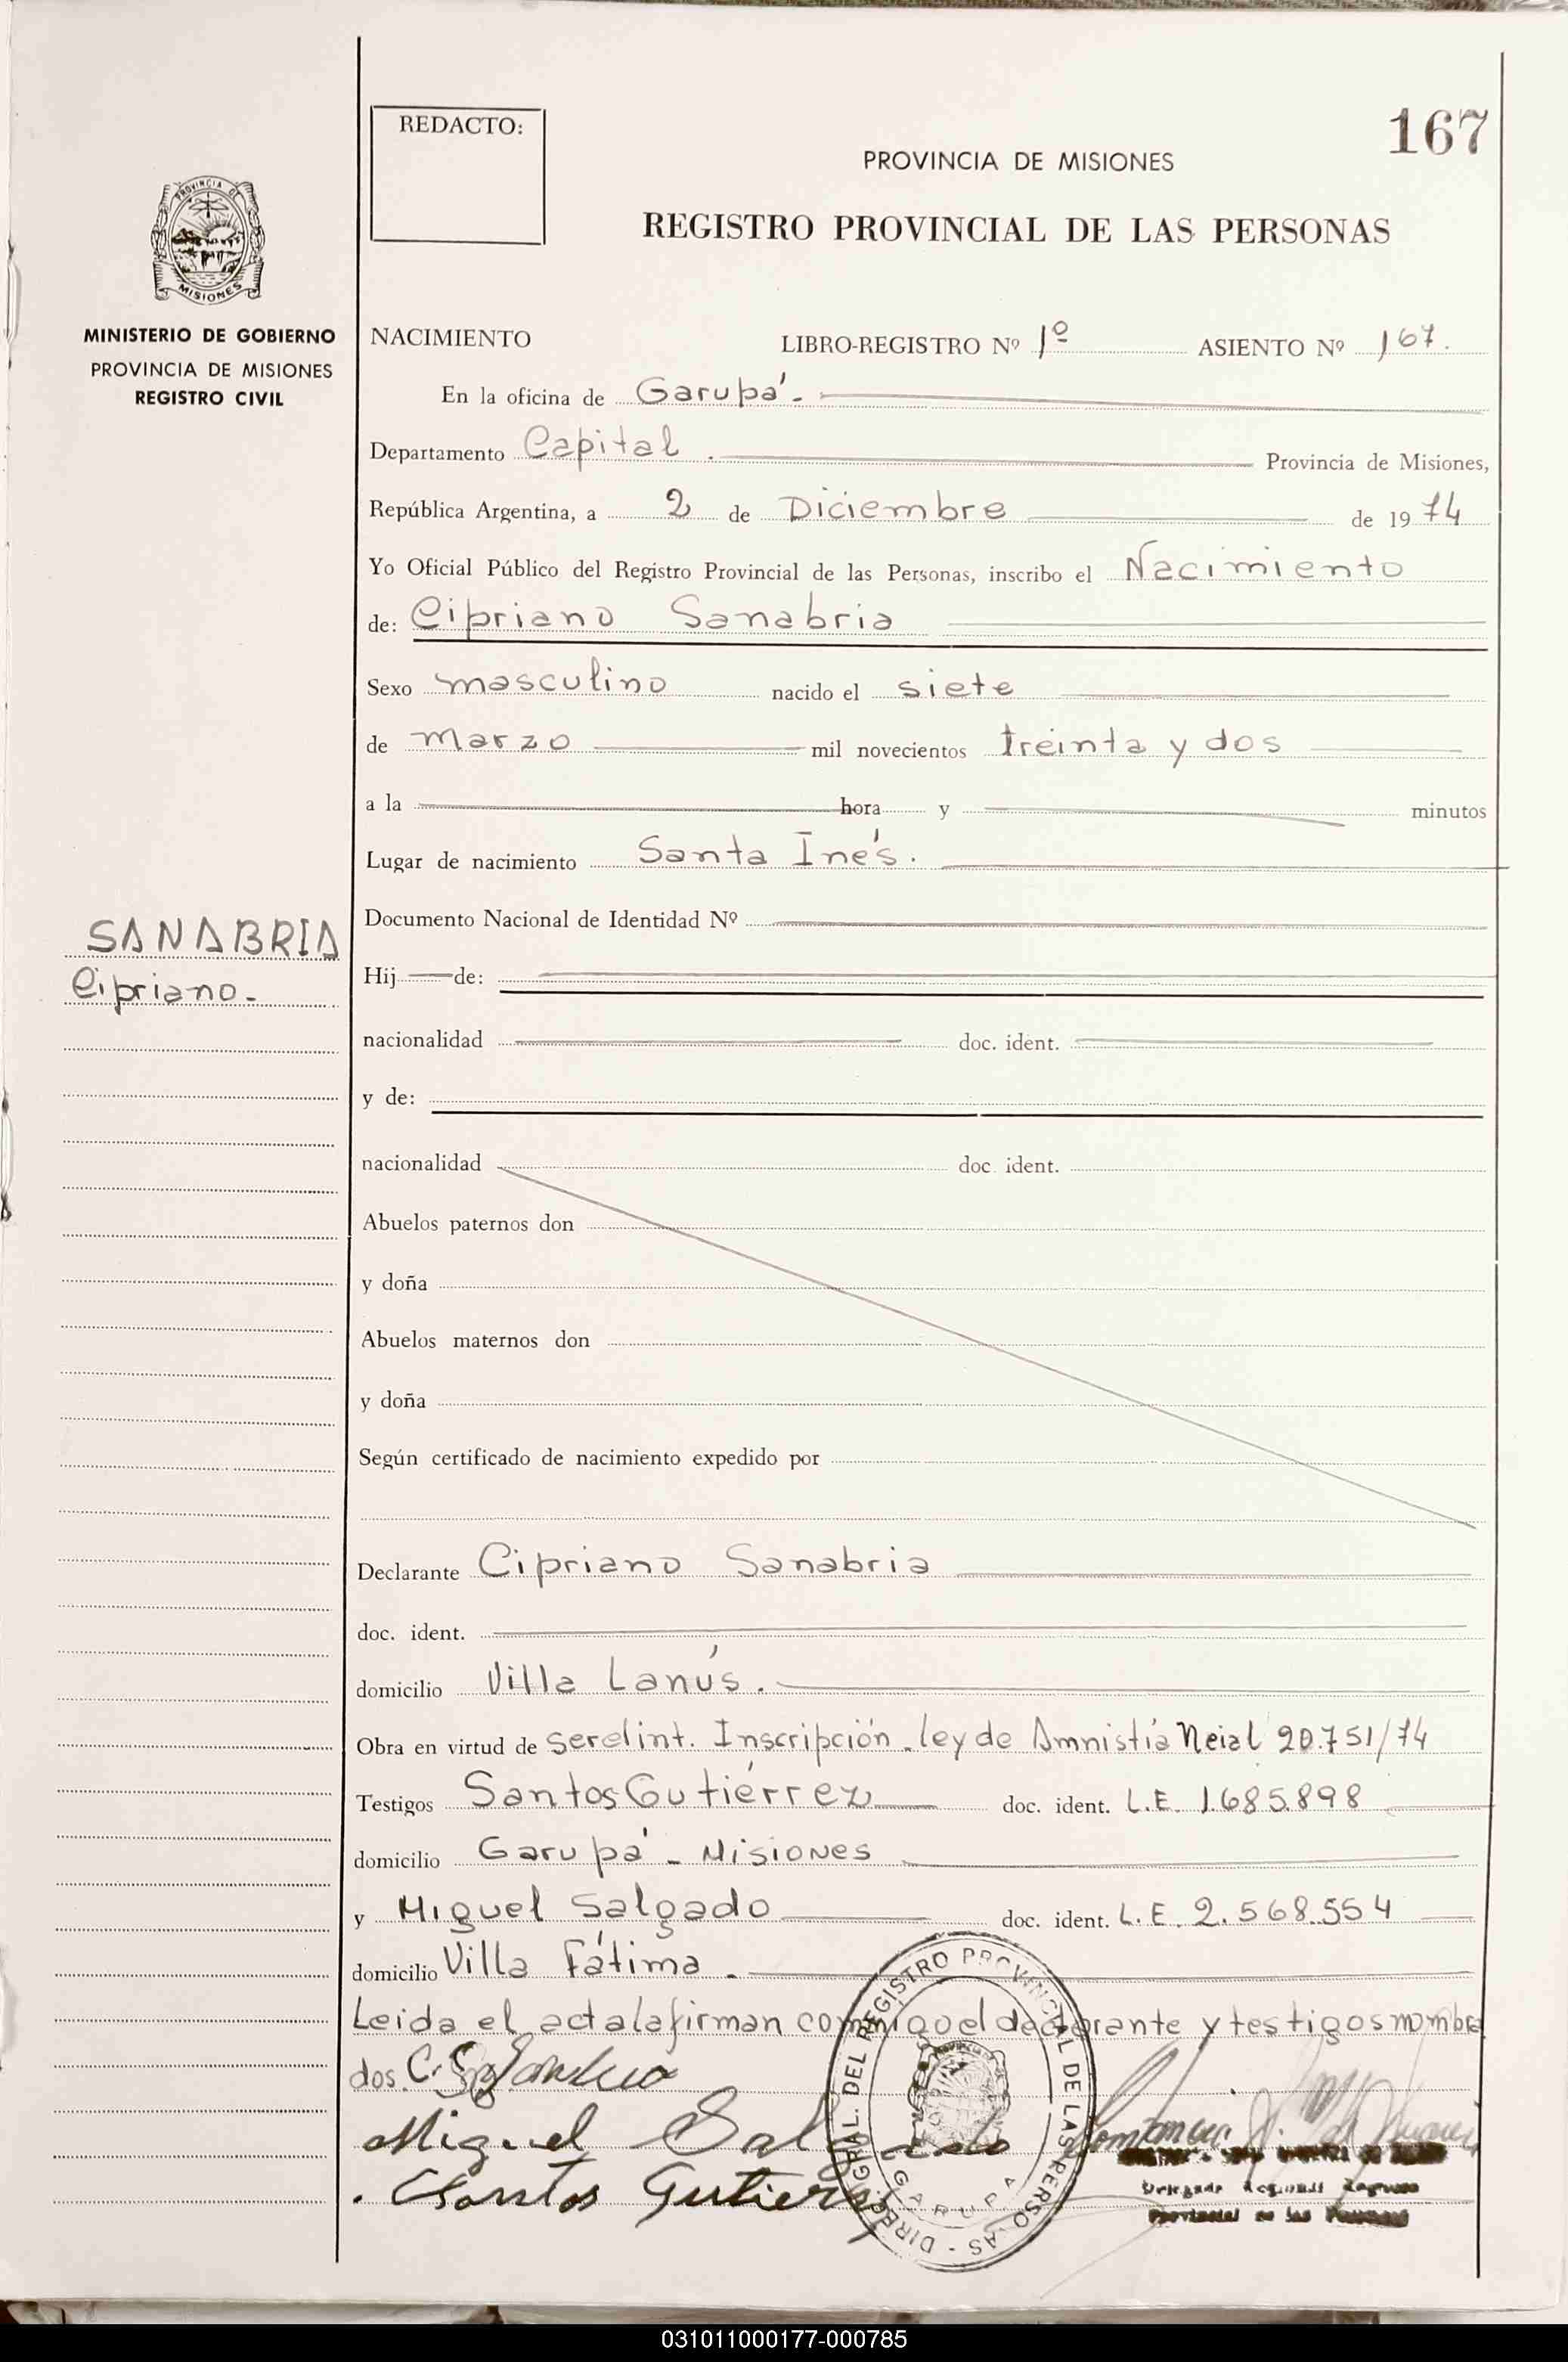 REDACTO:
167
PROVINCIA DE MISIONES
REGISTRO PROVINCIAL DE LAS PERSONAS
PROVINCIA DE
MISIONES
MINISTERIO DE GOBIERNO
PROVINCIA DE MISIONES
REGISTRO CIVIL
NACIMIENTO LIBRO-REGISTRO Nº 1º ASIENTO Nº 167.
En la oficina de Garupá.
Departamento Capital. Provincia de Misiones,
República Argentina, a 2 de Diciembre de 1974
Yo Oficial Público del Registro Provincial de las Personas, inscribo el Nacimiento
de: Cipriano Sanabria
Sexo masculino nacido el siete
de marzo mil novecientos treinta y dos
a la hora y minutos
Lugar de nacimiento Santa Inés.
SANABRIA
Cipriano.-
Documento Nacional de Identidad Nº
Hij de:
nacionalidad doc. ident.
y de:
nacionalidad doc. ident.
Abuelos paternos don
y doña
Abuelos maternos don
y doña
Según certificado de nacimiento expedido por
Declarante Cipriano Sanabria
doc. ident.
domicilio Villa Lanús.
Obra en virtud de ser el int. Inscripción. ley de Amnistía 20.751/74
Testigos Santos Gutiérrez doc. ident. L.E. 1.685.898
domicilio Garupá - Misiones
y Miguel Salgado doc. ident. L.E. 2.568.554
domicilio Villa Fátima.
Leida el acta la firman conmigo el declarante y testigos nombra
dos.
Miguel Salgado
Santos Gutierrez
DIREC. GRAL. DEL REGISTRO PROVINCIAL DE LAS PERSONAS -
GARUPA
Delegado Regional Registro
Provincial de las Personas
031011000177-000785